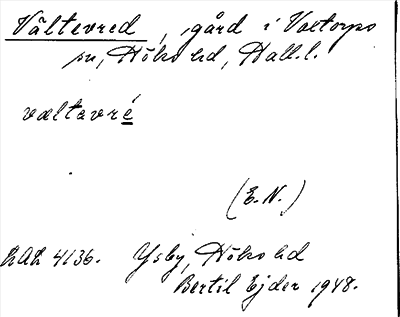 Vältevred, gård i Voxtorps
sn, Höks hd, Hall. l.
væltavré
(E.N.)
LAL 4136. Ysby, Höks hd
Bertil Ejder 1948.